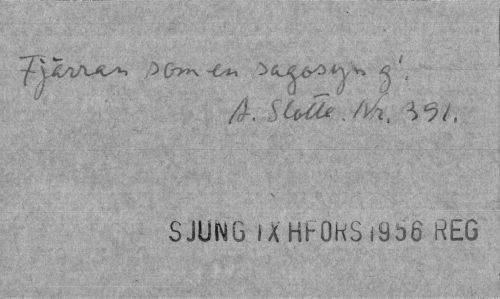 Fjärran som en sagosyn g'.
A. Slotte. Nr. 391.
SJUNG IX HFORS 1956 REG